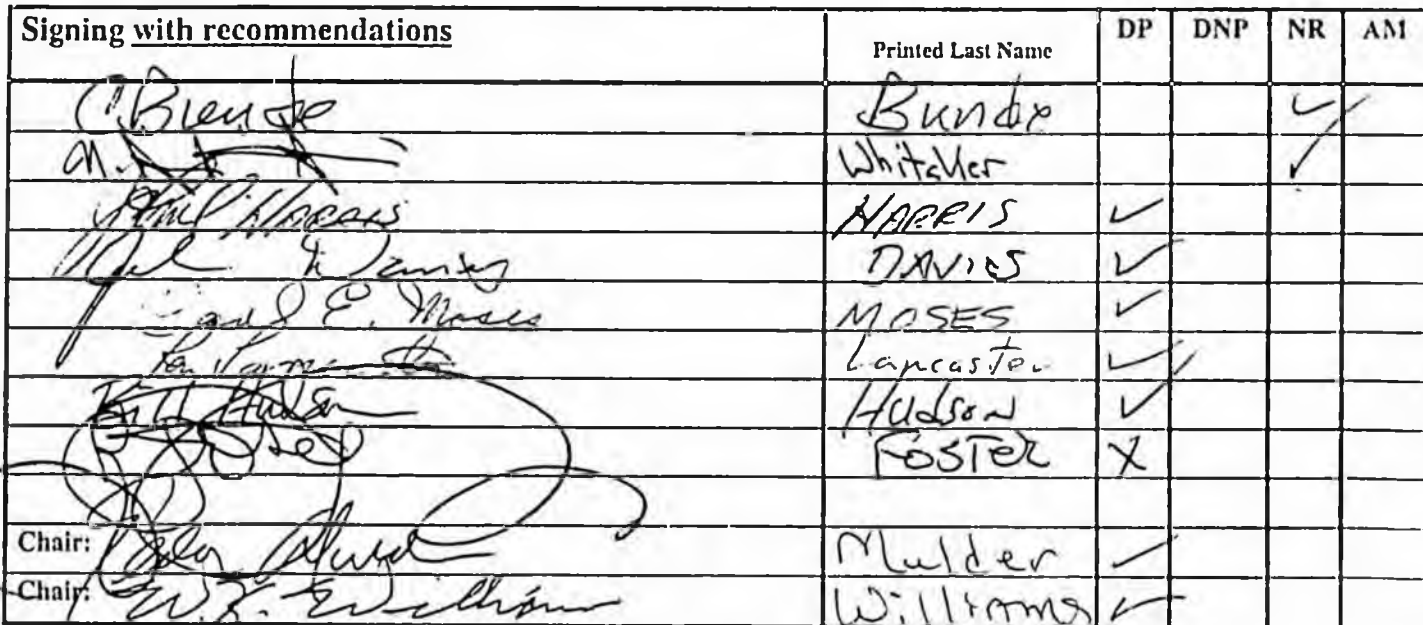 Signing with recommendations Printed Last Name DP DNP NR AM
C. Bunde Bunde ✓
Whitaker ✓
Phil Harris HARRIS ✓
Davies DAVIES ✓
E. Moses MOSES ✓
Lancaster ✓
Bill Hudson Hudson ✓
Foster FOSTER X
Chair: Mulder ✓
Chair: W.K. Williams Williams ✓